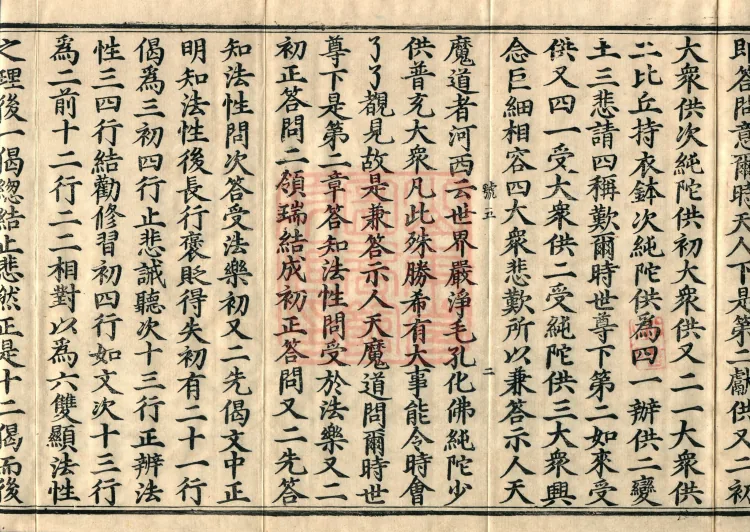 即答問意爾時天人下是第二獻供又二初
大衆供次純陀供初大衆供又二一大衆供
二比丘持衣鉢次純陀供為四一辦供二變
土三悲請四稱歎爾時世尊下第二如來受
供又四一受大衆供二受純陀供三大衆興
念巨細相容四大衆悲歎所以兼答示人天
號五 二
魔道者河西云世界嚴淨毛孔化佛純陀少
供普充大衆凡此殊勝希有大事能令時會
了了覩見故是兼答示人天魔道問爾時世
尊下是第二章答知法性問受於法樂又二
初正答問二領瑞結成初正答問又二先答
知法性問次答受法樂初又二先偈文中正
明知法性後長行褒貶得失初有二十一行
偈為三初四行止悲誡聽次十三行正辨法
性三四行結勸修習初四行如文次十三行
為二前十二行二二相對以為六雙顯法性
之理後一偈總結止悲然正是十二偈而後